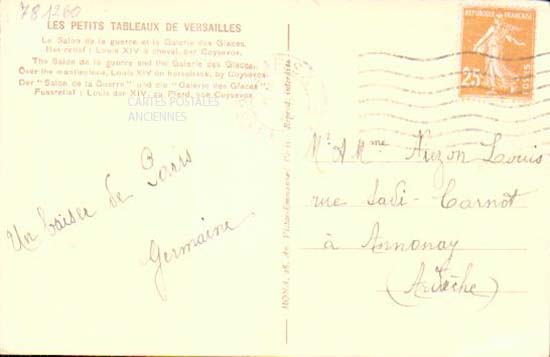 781260
LES PETITS TABLEAUX DE VERSAILLES
Le Salon de la guerre et la Galerie des Glaces.
Bas-relief : Louis XIV à cheval, par Coysevox.
The Salon of the guerre and the Galerie des Glaces.
Over the mantlepiece, Louis XIV on horseback, by Coysevox.
Der "Salon de la Guerre" und die "Galerie des Glaces".
Fussrelief : Louis der XIV, zu Pferd, von Coysevox.
CARTES POSTALES
ANCIENNES
Un baiser de Paris
Germaine
MONA, Av. Victor-Emmanuel Paris. Reprod. interdite.
REPUBLIQUE FRANCAISE
25c
POSTES
Mr & Mme Louis
rue Sadi-Carnot
à Annonay
(Ardèche)